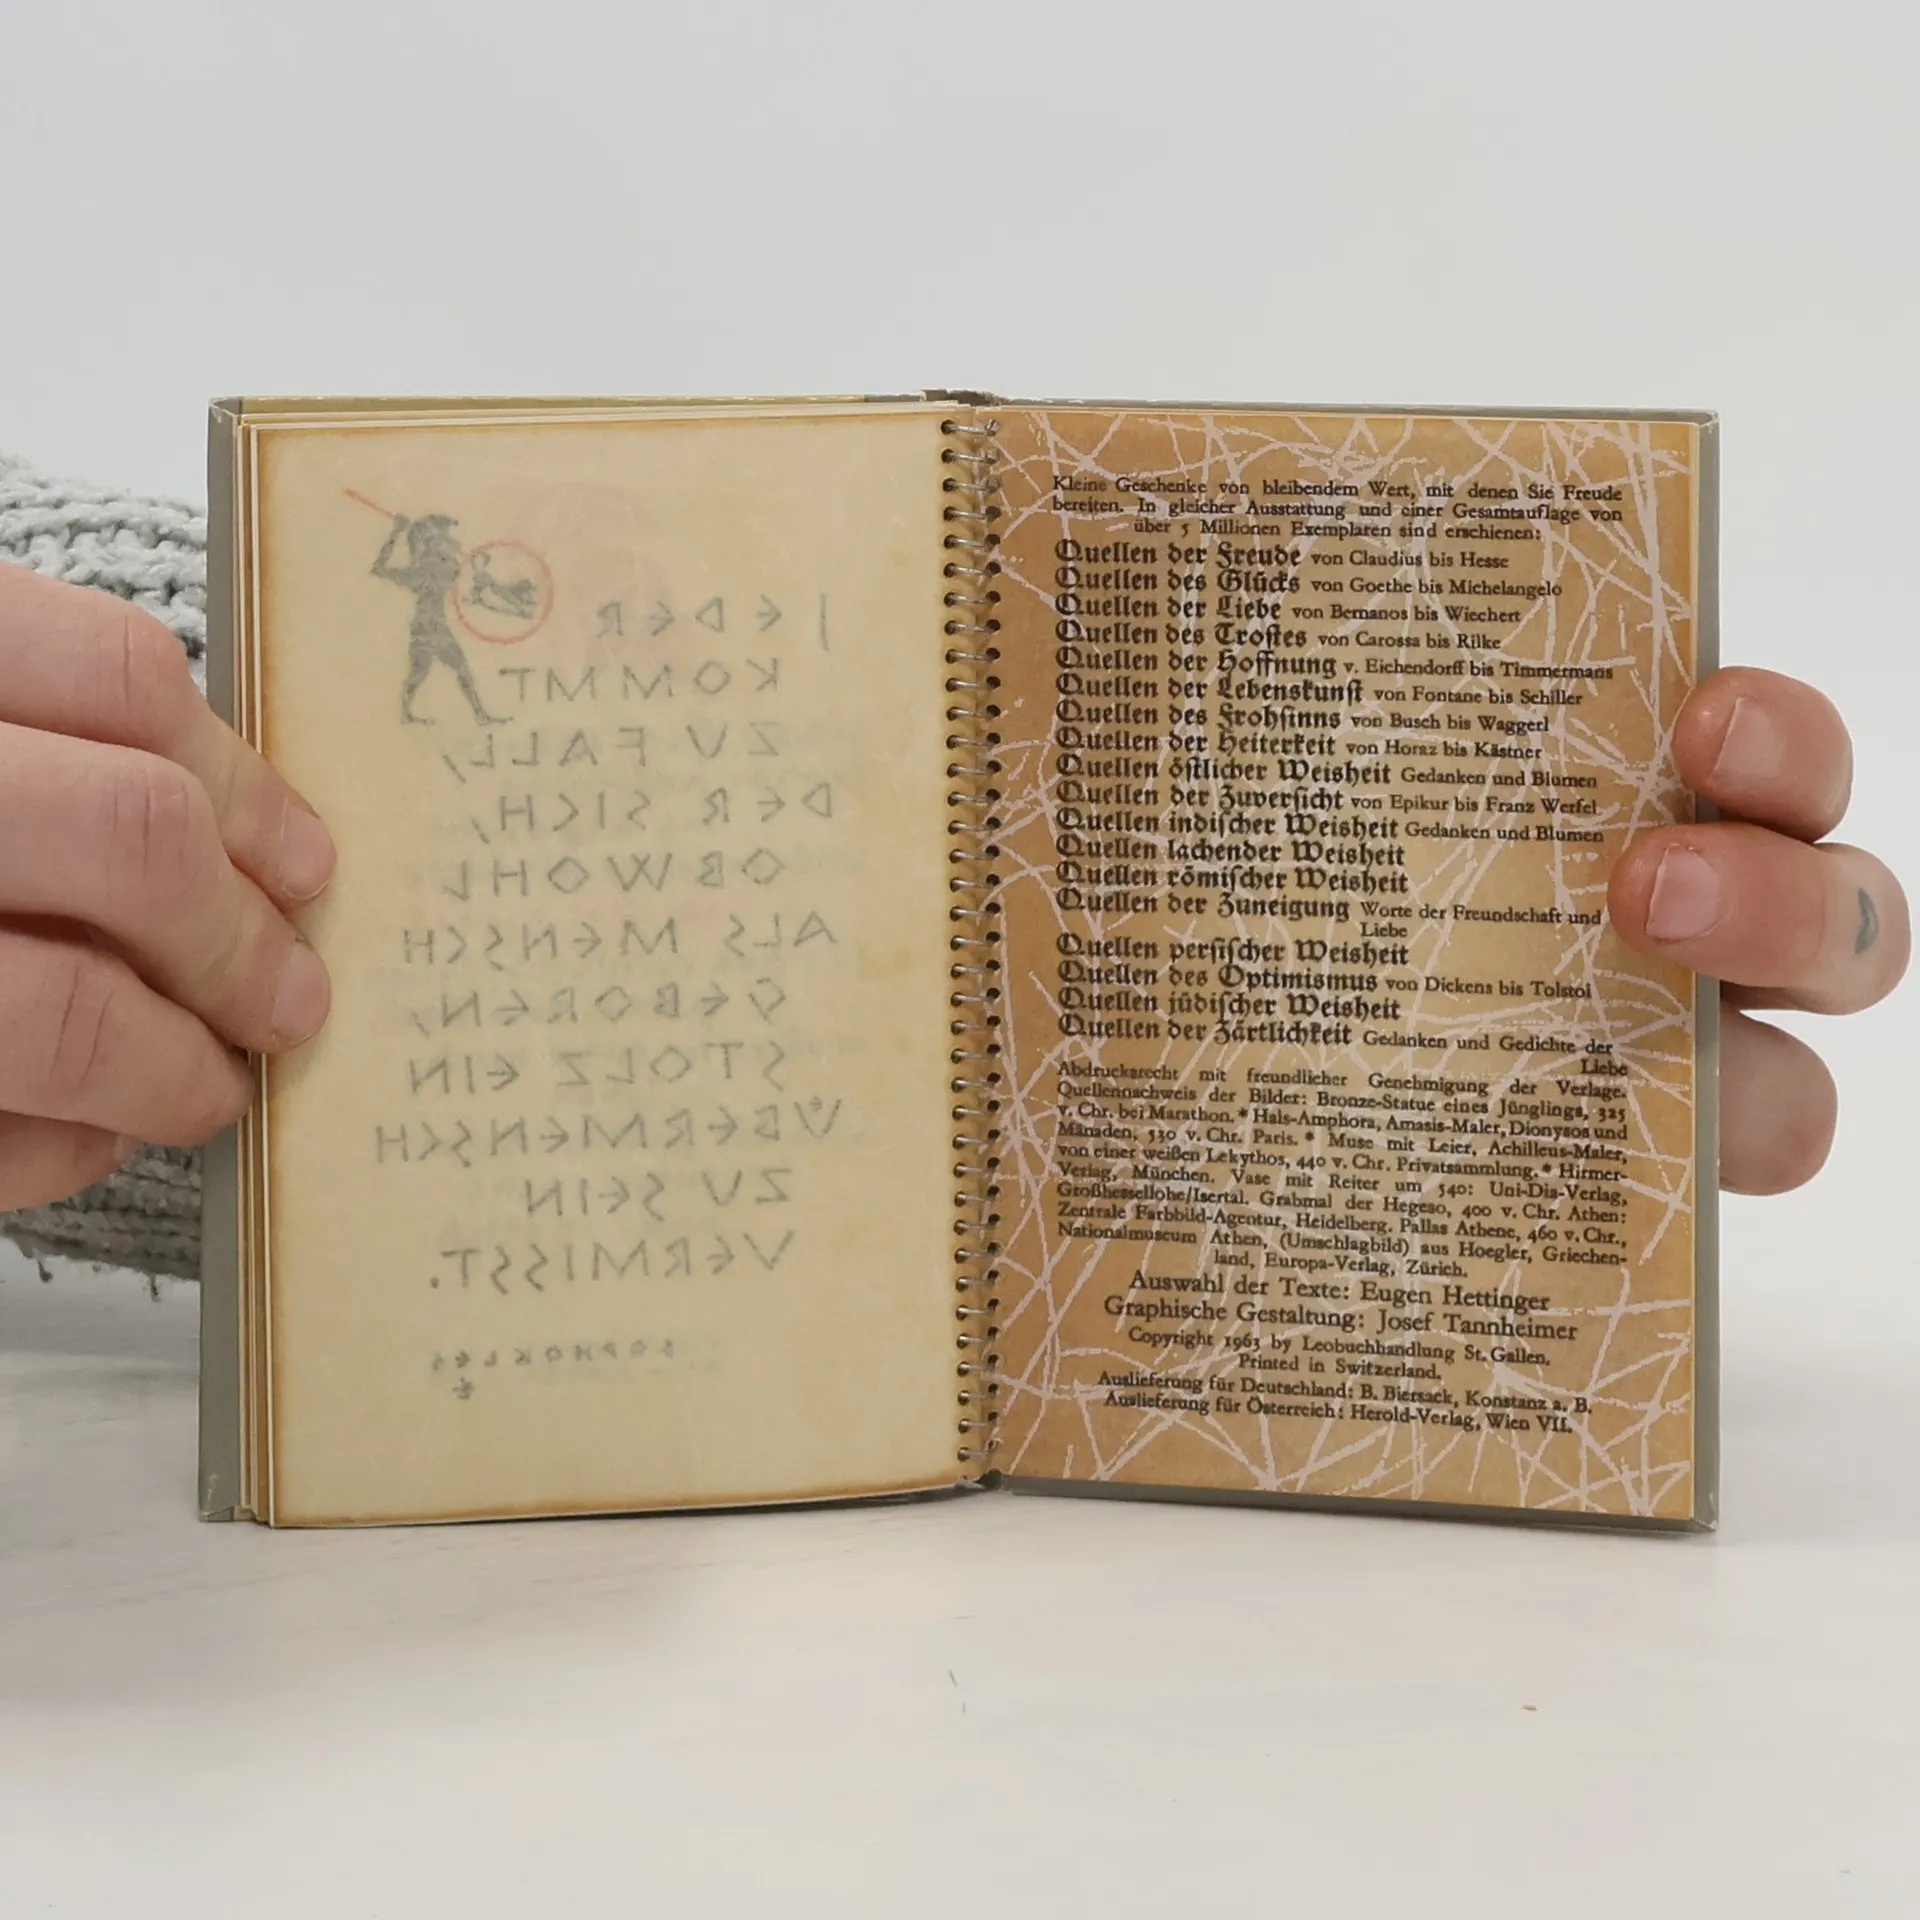 JEDER
KOMMT
ZU FALL,
DER SICH,
OBWOHL
ALS MENSCH
GEBOREN,
STOLZ EIN
ÜBERMENSCH
ZU SEIN
VERMISST.
SOPHOKLES
Kleine Geschenke von bleibendem Wert, mit denen Sie Freude
bereiten. In gleicher Ausstattung und einer Gesamtauflage von
über 5 Millionen Exemplaren sind erschienen:
Quellen der Freude von Claudius bis Hesse
Quellen des Glücks von Goethe bis Michelangelo
Quellen der Liebe von Bernanos bis Wiechert
Quellen des Trostes von Carossa bis Rilke
Quellen der Hoffnung v. Eichendorff bis Timmermans
Quellen der Lebenskunst von Fontane bis Schiller
Quellen des Frohsinns von Busch bis Waggerl
Quellen der Heiterkeit von Horaz bis Kästner
Quellen östlicher Weisheit Gedanken und Blumen
Quellen der Zuversicht von Epikur bis Franz Werfel
Quellen indischer Weisheit Gedanken und Blumen
Quellen lachender Weisheit
Quellen römischer Weisheit
Quellen der Zuneigung Worte der Freundschaft und
Liebe
Quellen persischer Weisheit
Quellen des Optimismus von Dickens bis Tolstoi
Quellen jüdischer Weisheit
Quellen der Zärtlichkeit Gedanken und Gedichte der
Liebe
Abdrucksrecht mit freundlicher Genehmigung der Verlage.
Quellennachweis der Bilder: Bronze-Statue eines Jünglings, 325
v. Chr. bei Marathon. * Hals-Amphora, Amasis-Maler, Dionysos und
Mänaden, 530 v. Chr. Paris. * Muse mit Leier, Achilleus-Maler,
von einer weißen Lekythos, 440 v. Chr. Privatsammlung. * Hirmer-
Verlag, München. Vase mit Reiter um 540: Uni-Dia-Verlag,
Großhesselohe/Isertal. Grabmal der Hegeso, 400 v. Chr. Athen:
Zentrale Farbbild-Agentur, Heidelberg. Pallas Athene, 460 v. Chr.,
Nationalmuseum Athen, (Umschlagbild) aus Hoegler, Griechen-
land, Europa-Verlag, Zürich.
Auswahl der Texte: Eugen Hettinger
Graphische Gestaltung: Josef Tannheimer
Copyright 1963 by Leobuchhandlung St. Gallen.
Printed in Switzerland.
Auslieferung für Deutschland: B. Biersack, Konstanz a. B.
Auslieferung für Österreich: Herold-Verlag, Wien VII.